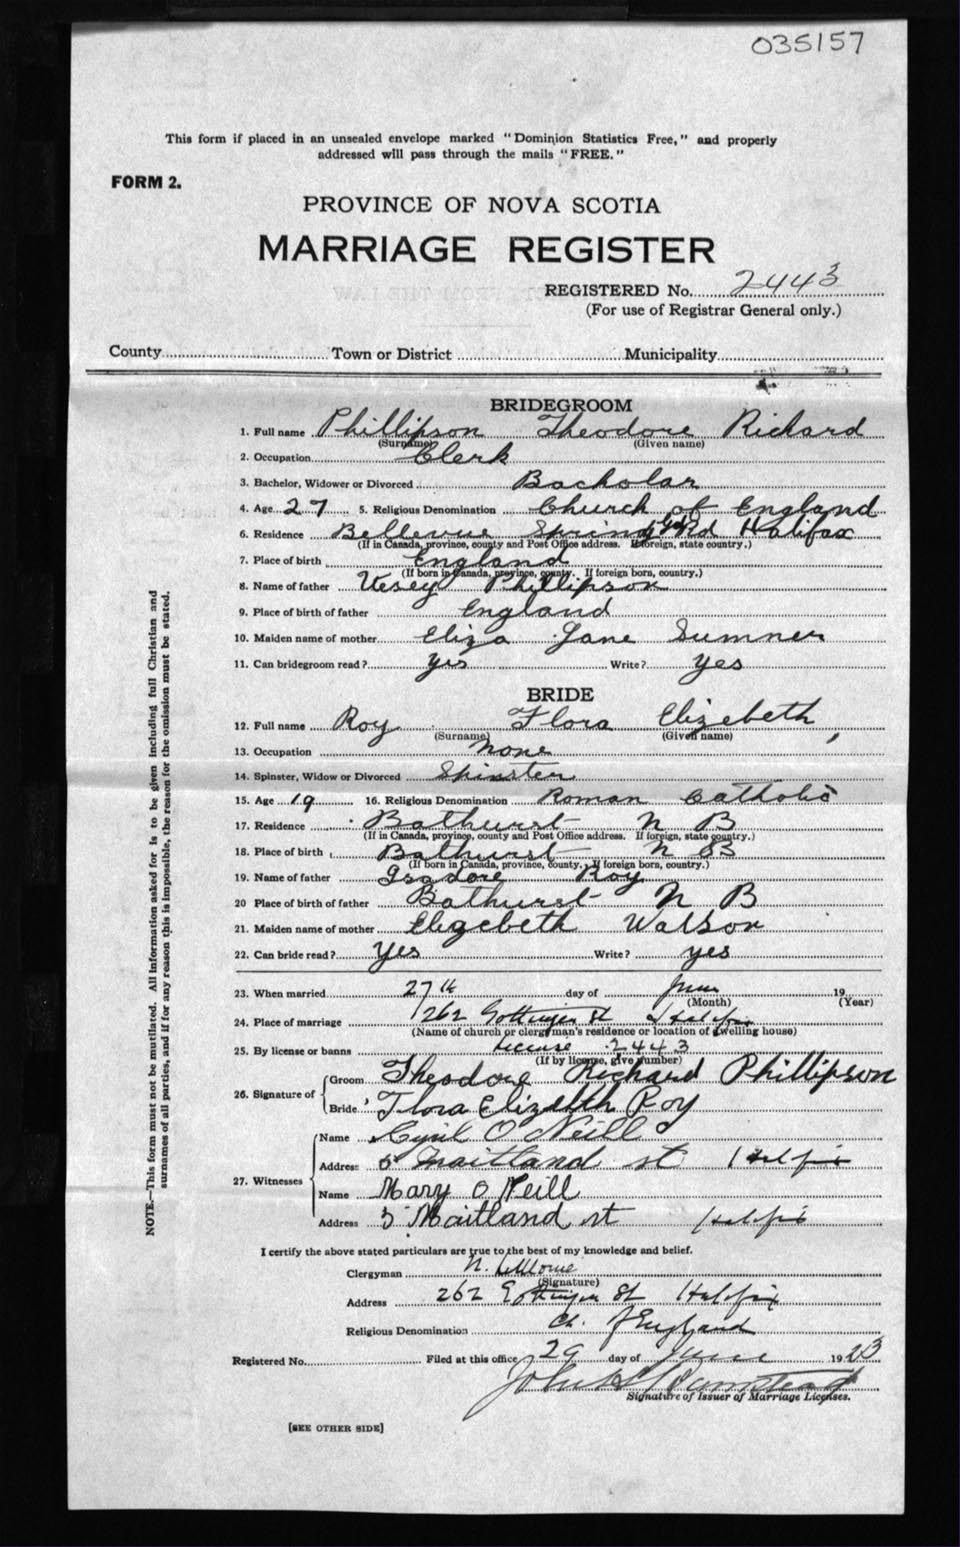 035157
This form if placed in an unsealed envelope marked "Dominion Statistics Free," and properly
addressed will pass through the mails "FREE."
FORM 2.
PROVINCE OF NOVA SCOTIA
MARRIAGE REGISTER
REGISTERED No. 2443
(For use of Registrar General only.)
County Town or District Municipality
BRIDEGROOM
1. Full name Phillipson Theodore Richard
(Surname) (Given name)
2. Occupation Clerk
3. Bachelor, Widower or Divorced Bacholar
4. Age 27 5. Religious Denomination Church of England
6. Residence Bellevue Spring Gd Rd Halifax
(If in Canada, province, county and Post Office address. If foreign, state country.)
7. Place of birth England
(If born in Canada, province, county. If foreign born, country.)
8. Name of father Vesey Phillipson
9. Place of birth of father England
10. Maiden name of mother Eliza Jane Sumner
11. Can bridegroom read? yes Write? yes
BRIDE
12. Full name Roy Flora Elizebeth
(Surname) (Given name)
13. Occupation none
14. Spinster, Widow or Divorced Spinster
15. Age 19 16. Religious Denomination Roman Catholic
17. Residence Bathurst N B
(If in Canada, province, county and Post Office address. If foreign, state country.)
18. Place of birth Bathurst N B
(If born in Canada, province, county, If foreign born, country.)
19. Name of father Isadore Roy
20 Place of birth of father Bathurst N B
21. Maiden name of mother Elizebeth Watson
22. Can bride read? Yes Write? yes
23. When married 27th day of June 19
(Month) (Year)
24. Place of marriage 262 Gottingen St Halifax
(Name of church or clergyman's residence or location of dwelling house)
25. By license or banns License 2443
(If by license, give number)
26. Signature of Groom Theodore Richard Phillipson
Bride Flora Elizabeth Roy
27. Witnesses Name Cyril O'Neill
Address 5 Maitland st Halifax
Name Mary O Neill
Address 5 Maitland st Halifax
I certify the above stated particulars are true to the best of my knowledge and belief.
Clergyman N.
(Signature)
Address 262 Gottingen St Halifax
Religious Denomination Ch. of England
Registered No. Filed at this office 29 day of June 1923
John H
Signature of Issuer of Marriage Licenses.
[SEE OTHER SIDE]
NOTE.—This form must not be mutilated. All information asked for is to be given including full Christian and
surnames of all parties, and if for any reason this is impossible, the reason for the omission must be stated.